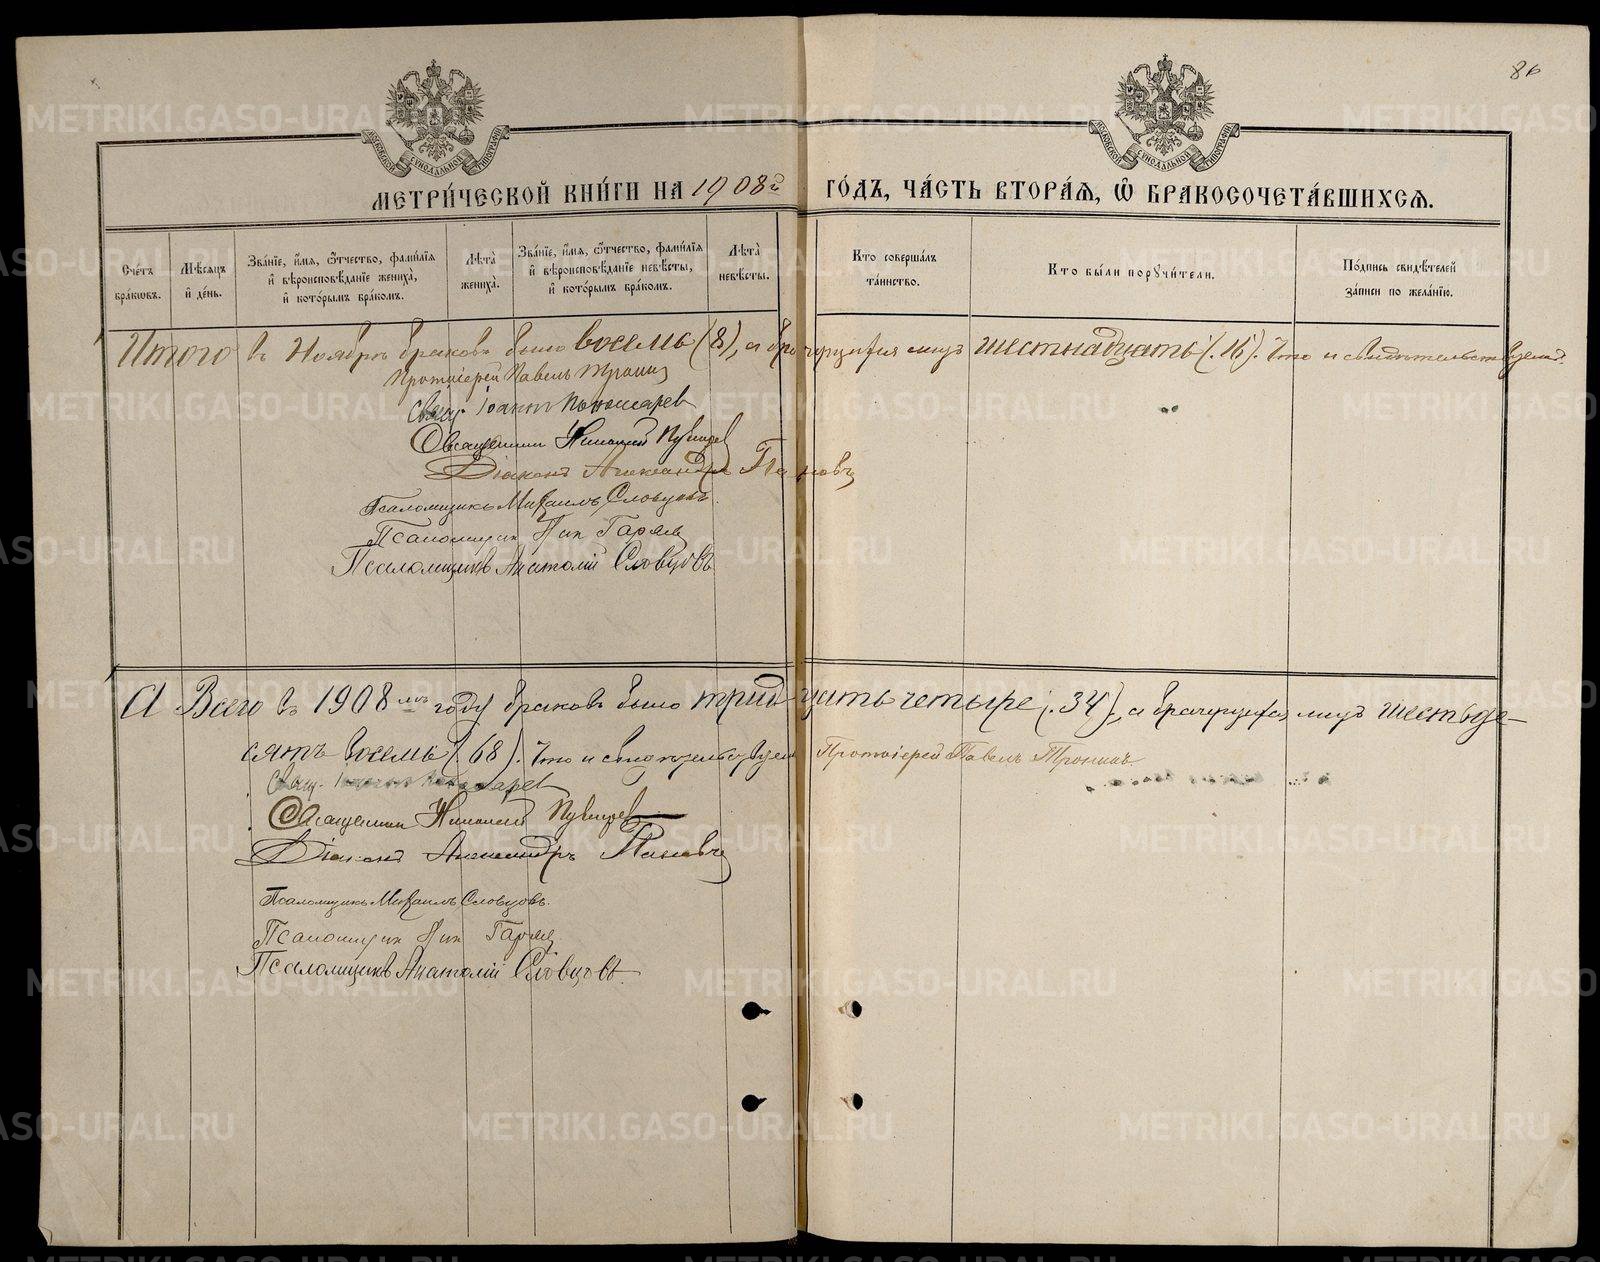 86
МОСКОВСКОЙ СѴНОДАЛЬНОЙ ТИПОГРАФІИ
МОСКОВСКОЙ СѴНОДАЛЬНОЙ ТИПОГРАФІИ
МЕТРИ́ЧЕСКОЙ КНИ́ГИ НА 1908й ГО́ДЪ, ЧА́СТЬ ВТОРА́Ѧ, Ѽ БРАКОСОЧЕТА́ВШИХСѦ.
Сче́тъ бра́кѡвъ.
Мѣ́сѧцъ и҆ де́нь.
Зва́нїе, и҆́мѧ, ѻ҆́тчество, фами́лїѧ и҆ вѣроисповѣ́данїе жениха̀, и҆ кото́рымъ бра́комъ.
Лѣ́та жениха̀.
Зва́нїе, и҆́мѧ, ѻ҆́тчество, фами́лїѧ и҆ вѣроисповѣ́данїе невѣ́сты, и҆ кото́рымъ бра́комъ.
Лѣ́та невѣ́сты.
Кто̀ соверша́лъ та́инство.
Кто̀ бы́ли порꙋчи́тели.
По́дпись свидѣ́телей за́писи по жела́нїю.
Итого въ Ноябрѣ браковъ было восемь (8), а брачущихся лицъ шестнадцать (16). Что и свидѣтельствуемъ.
Протоіерей Павелъ Тронинъ
Свящ. Іоаннъ Пономарев
Священник Николай
Діаконъ Александръ Пановъ
Псаломщикъ Михаилъ Словцовъ.
Псаломщик Ник Гаряев
Псаломщикъ Анатолій Словцовъ
А Всего въ 1908мъ году браковъ было тридцать четыре (34), а брачущихся лицъ шестьде-
сятъ восемь (68). Что и свидѣтельствуемъ Протоіерей Павелъ Тронинъ.
Свящ. Іоаннъ Пономарев
Священник Николай
Діаконъ Александръ Пановъ
Псаломщикъ Михаилъ Словцовъ.
Псаломщик Ник Гаряев
Псаломщикъ Анатолій Словцовъ.
METRIKI.GASO-URAL.RU